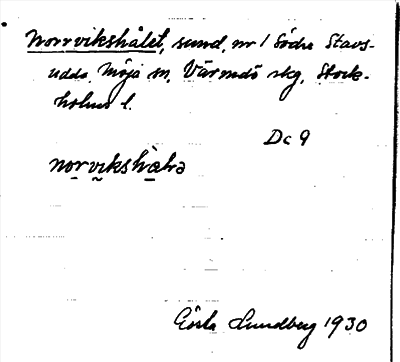 Norrvikshålet, sund, nr 1 Södra Stavs-
udda, Möja sn, Värmdö skg, Stock-
holms l.
Dc 9
Gösta Lundberg 1930